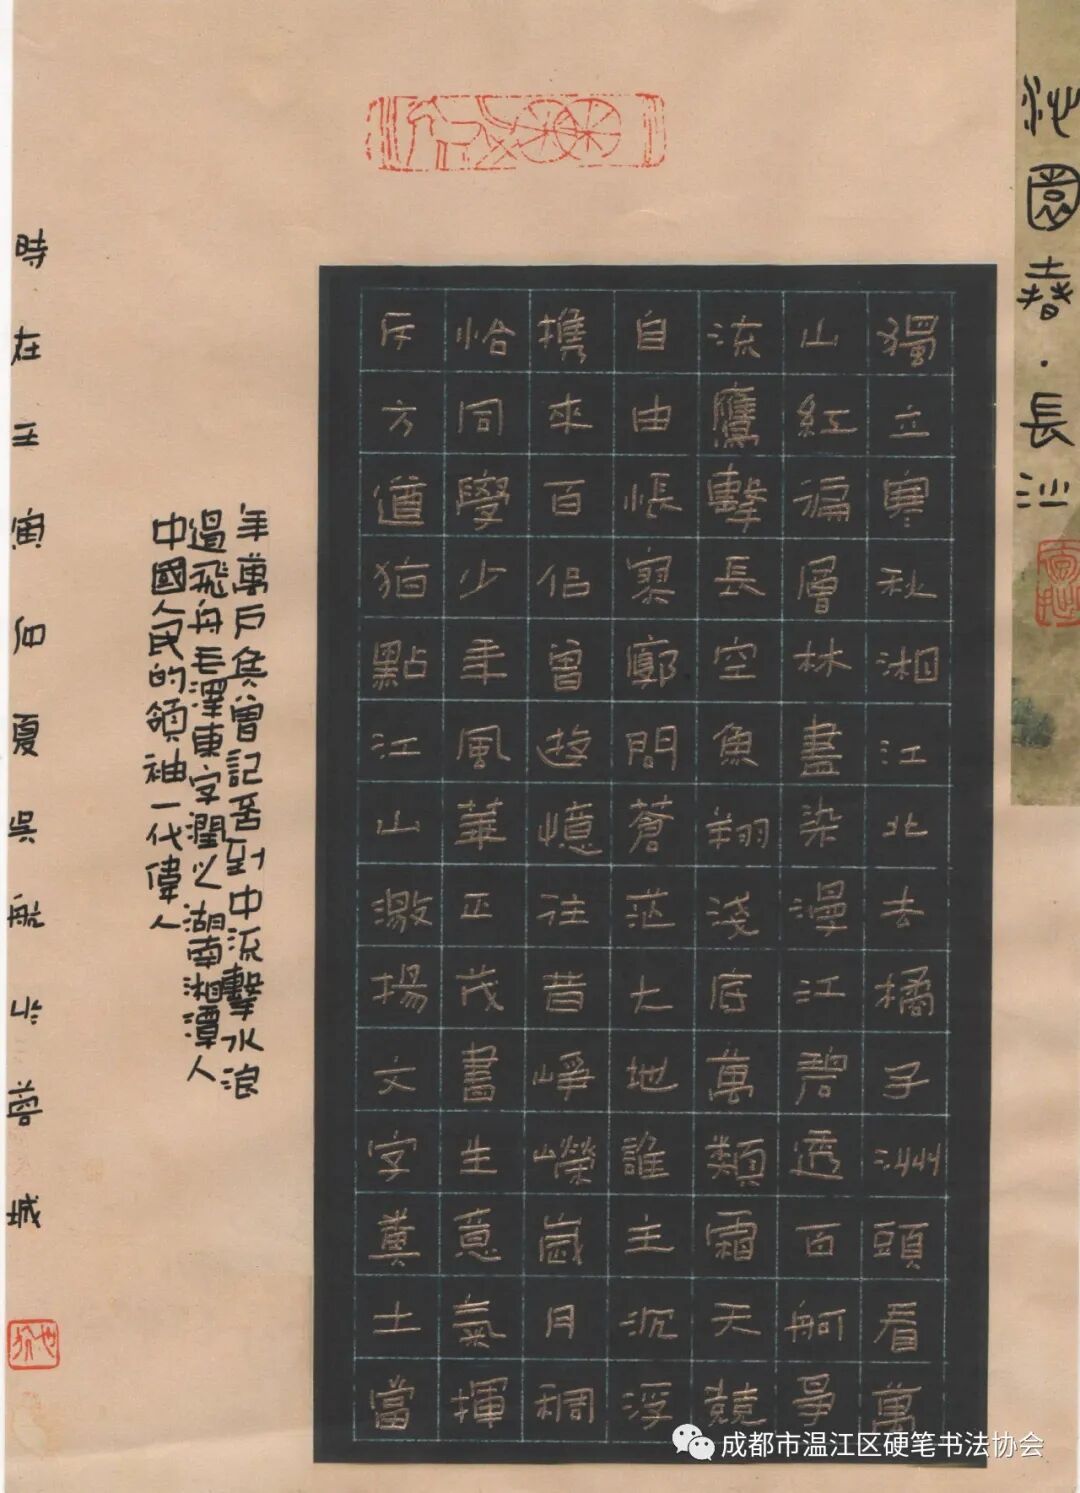 沁園春·長沙
獨立寒秋湘江北去橘子洲頭看萬
山紅徧層林盡染漫江碧透百舸爭
流鷹擊長空魚翔淺底萬類霜天競
自由悵寥廓問蒼茫大地誰主沉浮
携來百侣曾遊憶往昔崢嶸嵗月稠
恰同學少年風華正茂書生意氣揮
斥方遒指點江山激揚文字糞土當
年萬户矦曾記否到中流擊水浪
遏飛舟毛澤東字潤之湖南湘潭人
中國人民的領袖一代偉人
時在壬寅仲夏吳航於蓉城
成都市温江区硬笔书法协会